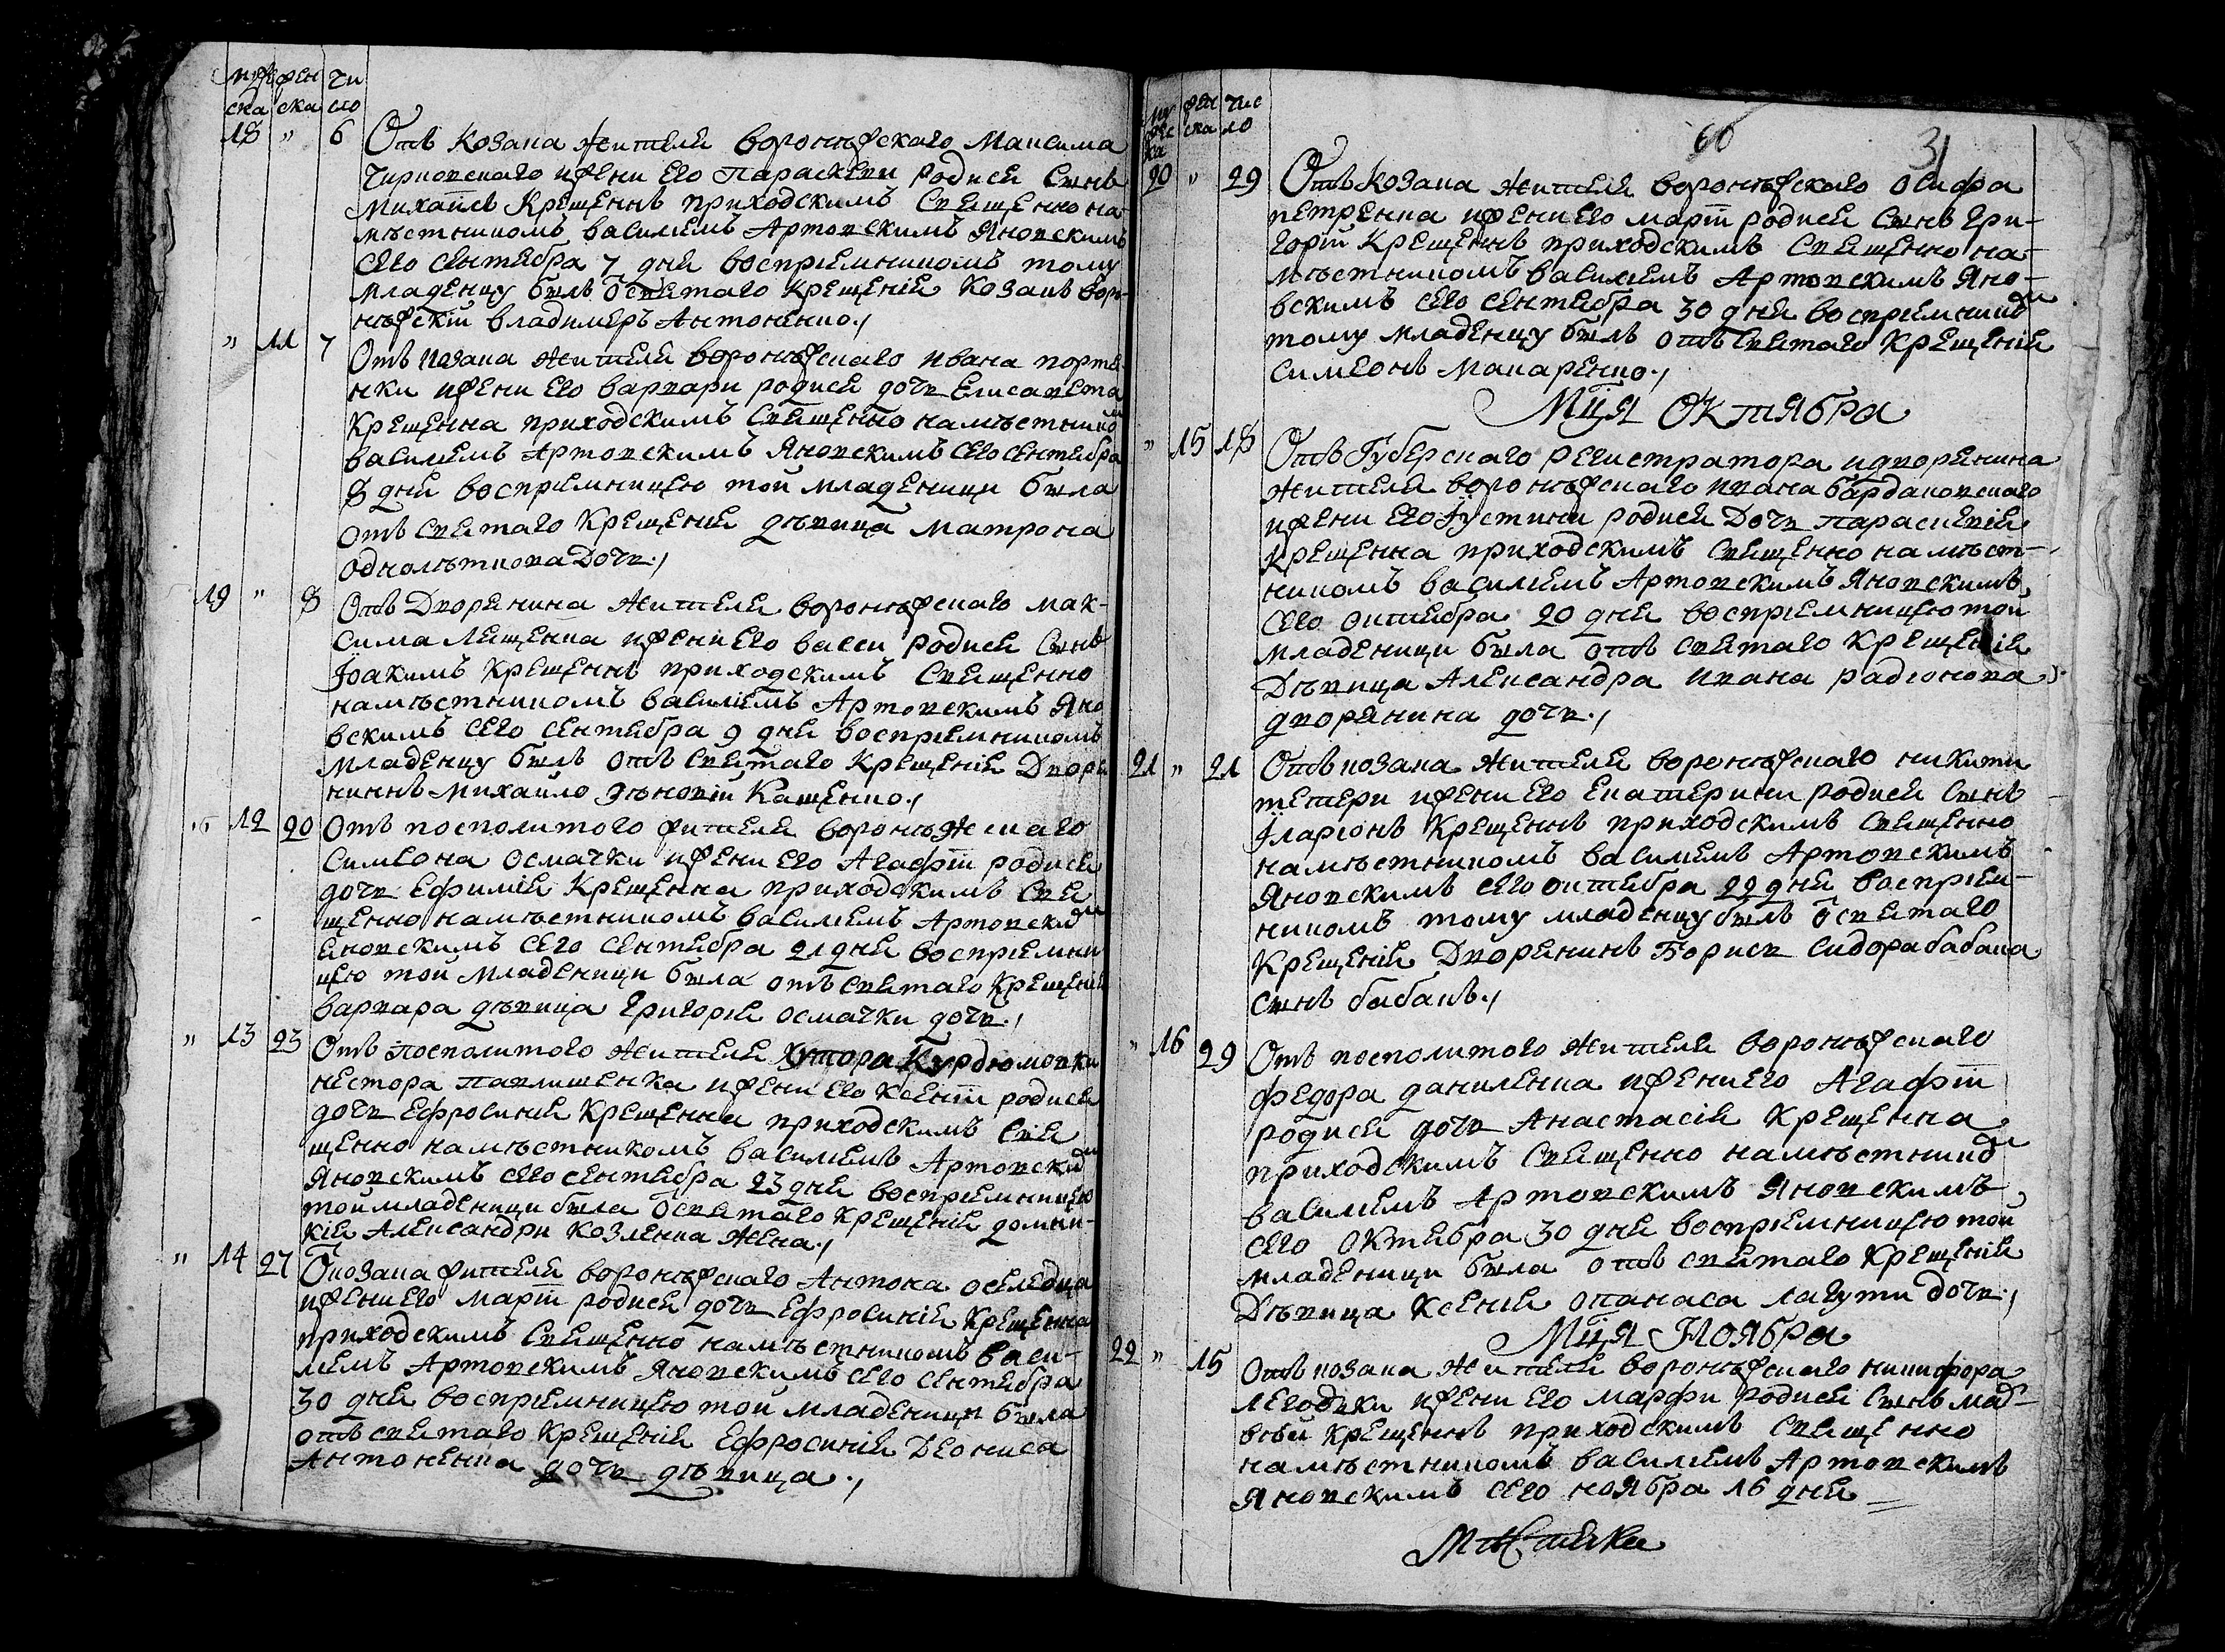 муже жен чи
ска ска сло
18 " 6 Отъ козака жителя воронѣжского Максима
Чирковскаго ижени его Параскеви родися сынъ
Михаилъ крещенъ приходскимъ священнона
мѣстникомъ василиемъ Артовскимъ Яновскимъ
сего сентября 7 дня восприемникомъ тому
младенцу былъ ѿ святаго крещенія козакъ воро-
нѣжскій владимеръ Антоненко
" 11 7 Отъ козака жителя воронѣжскаго ивана порте
нки ижени его варвари родися дочь Елисавета
крещенна приходскимъ священно намѣстником
василиемъ Артовскимъ Яновскимъ сего сентября
8 дня восприемницею той младеници была
отъ святаго крещенія дѣвица матрона
одномѣткова дочь
19 " 8 Отъ Дворянина жителя воронѣжскаго мак-
сима Лещенка ижени его васси родися сынъ
Іоакимъ крещенъ приходскимъ священно
намѣстникомъ василиемъ Артовскимъ Яно
вскимъ сего сентября 9 дня восприемникомъ
младенцу былъ отъ святаго крещенія Дворя
нинъ михайло Кащенко
" 12 20 Отъ посполитого жителя воронѣжскаго
Симеона осмачки ижени его Агафіи родися
дочь Ефимія крещенна приходскимъ свя
щенно намѣстникомъ василиемъ Артовским
яновскимъ сего сентября 21 дня восприемни
цею той младеници была отъ святаго крещенія
варвара дѣвица григорія осмачки дочь
" 13 23 Отъ посполитого жителя хутора Курдюмовки
нестора павлишенка ижени его ксеніи родися
дочь Ефросинія крещенна приходскимъ свя
щенно намѣстникомъ василиемъ Артовским
Яновскимъ сего сентября 23 дня восприемницею
той младеници была ѿ святаго крещенія домни-
кія Александри козленка жена
" 14 27 Ѿ козака жителя воронѣжскаго Антона оселедца
ижени его маріи родися дочь Ефросинія крещенна
приходскимъ священно намѣстникомъ васи-
лиемъ Артовскимъ Яновскимъ сего сентября
30 дня восприемницею той младеници была
отъ святаго крещенія Ефросинія Деониса
Антоненка дочь дѣвица
60 31
му жес ка жен ска чис ло
20 " 29 Отъ козака жителя воронѣжскаго осифа
петренка ижени его маріи родися сынъ гри-
горій крещенъ приходскимъ священно на-
мѣстникомъ василиемъ Артовскимъ Яно-
вскимъ сего сентября 30 дня восприемником
тому младенцу былъ отъ святаго крещенія
симеонъ макаренко
Мця октября
" 15 18 Отъ Губерскаго регистратора идворянина
жителя воронѣжскаго ивана бардаковскаго
ижени его Іустини родися дочь параскевія
крещенна приходскимъ священно намѣст-
никомъ василиемъ Артовскимъ Яновскимъ
сего октября 20 дня восприемницею той
младеници была отъ святаго крещенія
Дѣвица Александра ивана радіонова
дворянина дочь
21 " 21 Отъ козака жителя воронѣжскаго никити
тетери ижени его екатерини родися сынъ
Іларіонъ крещенъ приходскимъ священно
намѣстникомъ василиемъ Артовскимъ
Яновскимъ сего октября 22 дня восприем-
никомъ тому младенцу былъ ѿ святаго
крещенія Дворянинъ Борисъ сидора бабака
сынъ бабакъ
" 16 29 Отъ посполитого жителя воронѣжскаго
федора даниленка ижени его Агафіи
родися дочь Анастасія крещенна
приходскимъ священно намѣстником
василиемъ Артовскимъ Яновскимъ
сего октября 30 дня восприемницею той
младеници была отъ святаго крещенія
Дѣвица ксенія опанаса лагути дочь
Мця Ноября
22 " 15 Отъ козака жителя воронѣжскаго никифора
ижени его марфи родися сынъ мат-
вѣй крещенъ приходскимъ священно
намѣстникомъ василиемъ Артовскимъ
Яновскимъ сего ноября 16 дня